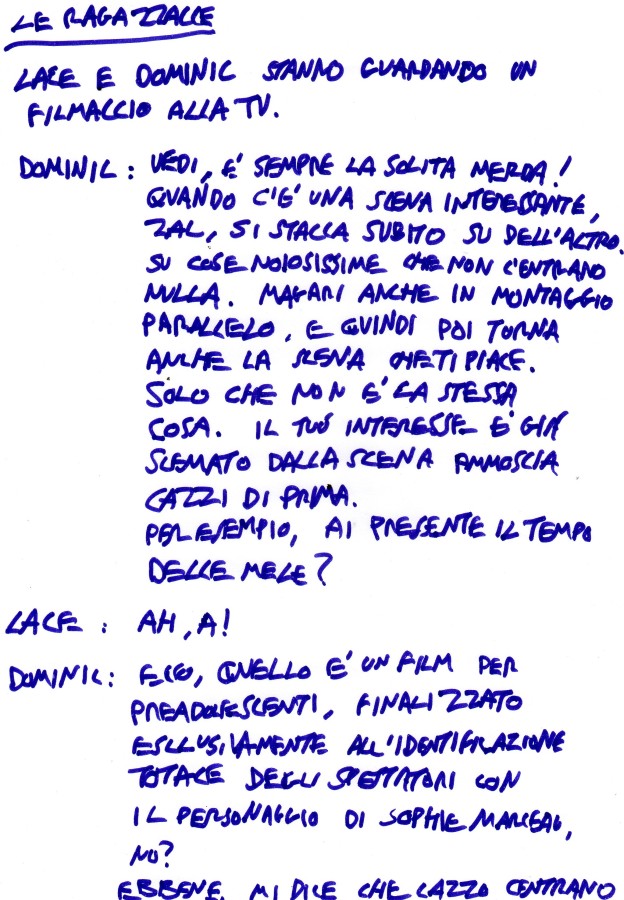 LE RAGAZZACCE
LACE E DOMINIC STANNO GUARDANDO UN
FILMACCIO ALLA TV.
DOMINIC: VEDI, E' SEMPRE LA SOLITA MERDA!
QUANDO C'E' UNA SCENA INTERESSANTE,
ZAC, SI STACCA SUBITO SU DELL'ALTRO.
SU COSE NOIOSISSIME CHE NON C'ENTRANO
NULLA. MAGARI ANCHE IN MONTAGGIO
PARALLELO, E QUINDI POI TORNA
ANCHE LA SCENA CHE TI PIACE.
SOLO CHE NON E' LA STESSA
COSA. IL TUO INTERESSE E' GIA'
SCEMATO DALLA SCENA AMMOSCIA
CAZZI DI PRIMA.
PER ESEMPIO, AI PRESENTE IL TEMPO
DELLE MELE?
LACE: AH, A!
DOMINIC: ECCO, QUELLO E' UN FILM PER
PREADOLESCENTI, FINALIZZATO
ESCLUSIVAMENTE ALL'IDENTIFICAZIONE
TOTALE DEGLI SPETTATORI CON
IL PERSONAGGIO DI SOPHIE MARCEAU,
NO?
EBBENE, MI DICE CHE CAZZO CENTRANO